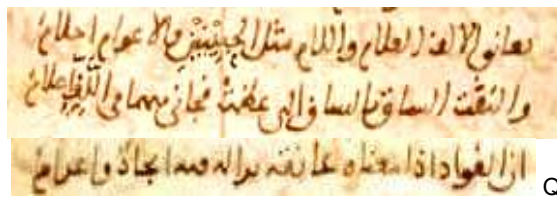 تعانق الالف العلام واللام مثل الحبيبين فالاعوام احلامُ
والتفت الساق بالساق التي عظمت فجاني منهما في اللفِّ اعلامُ
ان الفواد اذا معناه عانقه بدا له فيه ايجادٌ واعدامُ
Q